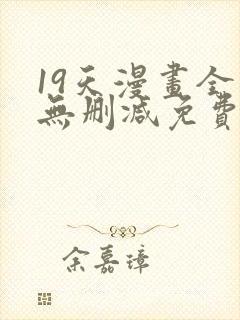 19天漫畫全
無刪減免費
余嘉璋